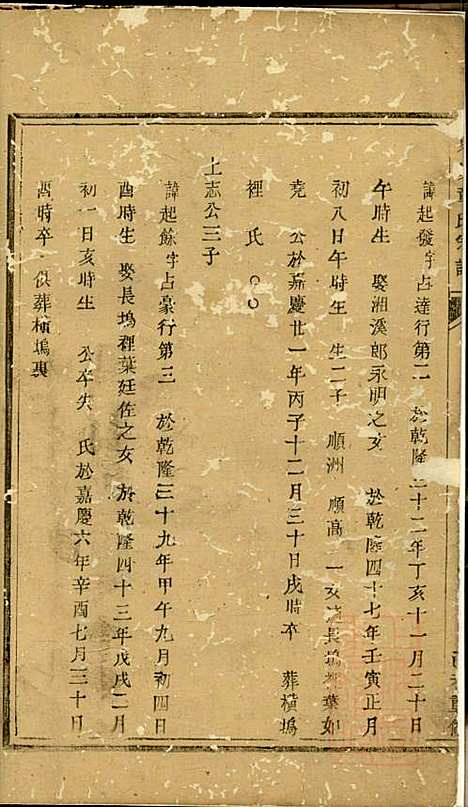 諱起發字占達行第二 於乾隆三十二年丁亥十一月二十日
午時生 娶湘溪郎永明之女 於乾隆四十七年壬寅正月
初八日午時生 生二子 順洲 順高 一女適長塢裡葉如
堯 公於嘉慶廿一年丙子十二月三十日戌時卒 葬横塢
裡 氏〇〇
上志公三子
諱起餘字占豪行第三 於乾隆三十九年甲午九月初四日
酉時生 娶長塢裡葉廷佐之女 於乾隆四十三年戊戌二月
初一日亥時生 公卒失 氏於嘉慶六年辛酉七月三十日
酉時卒 俱葬横塢裏